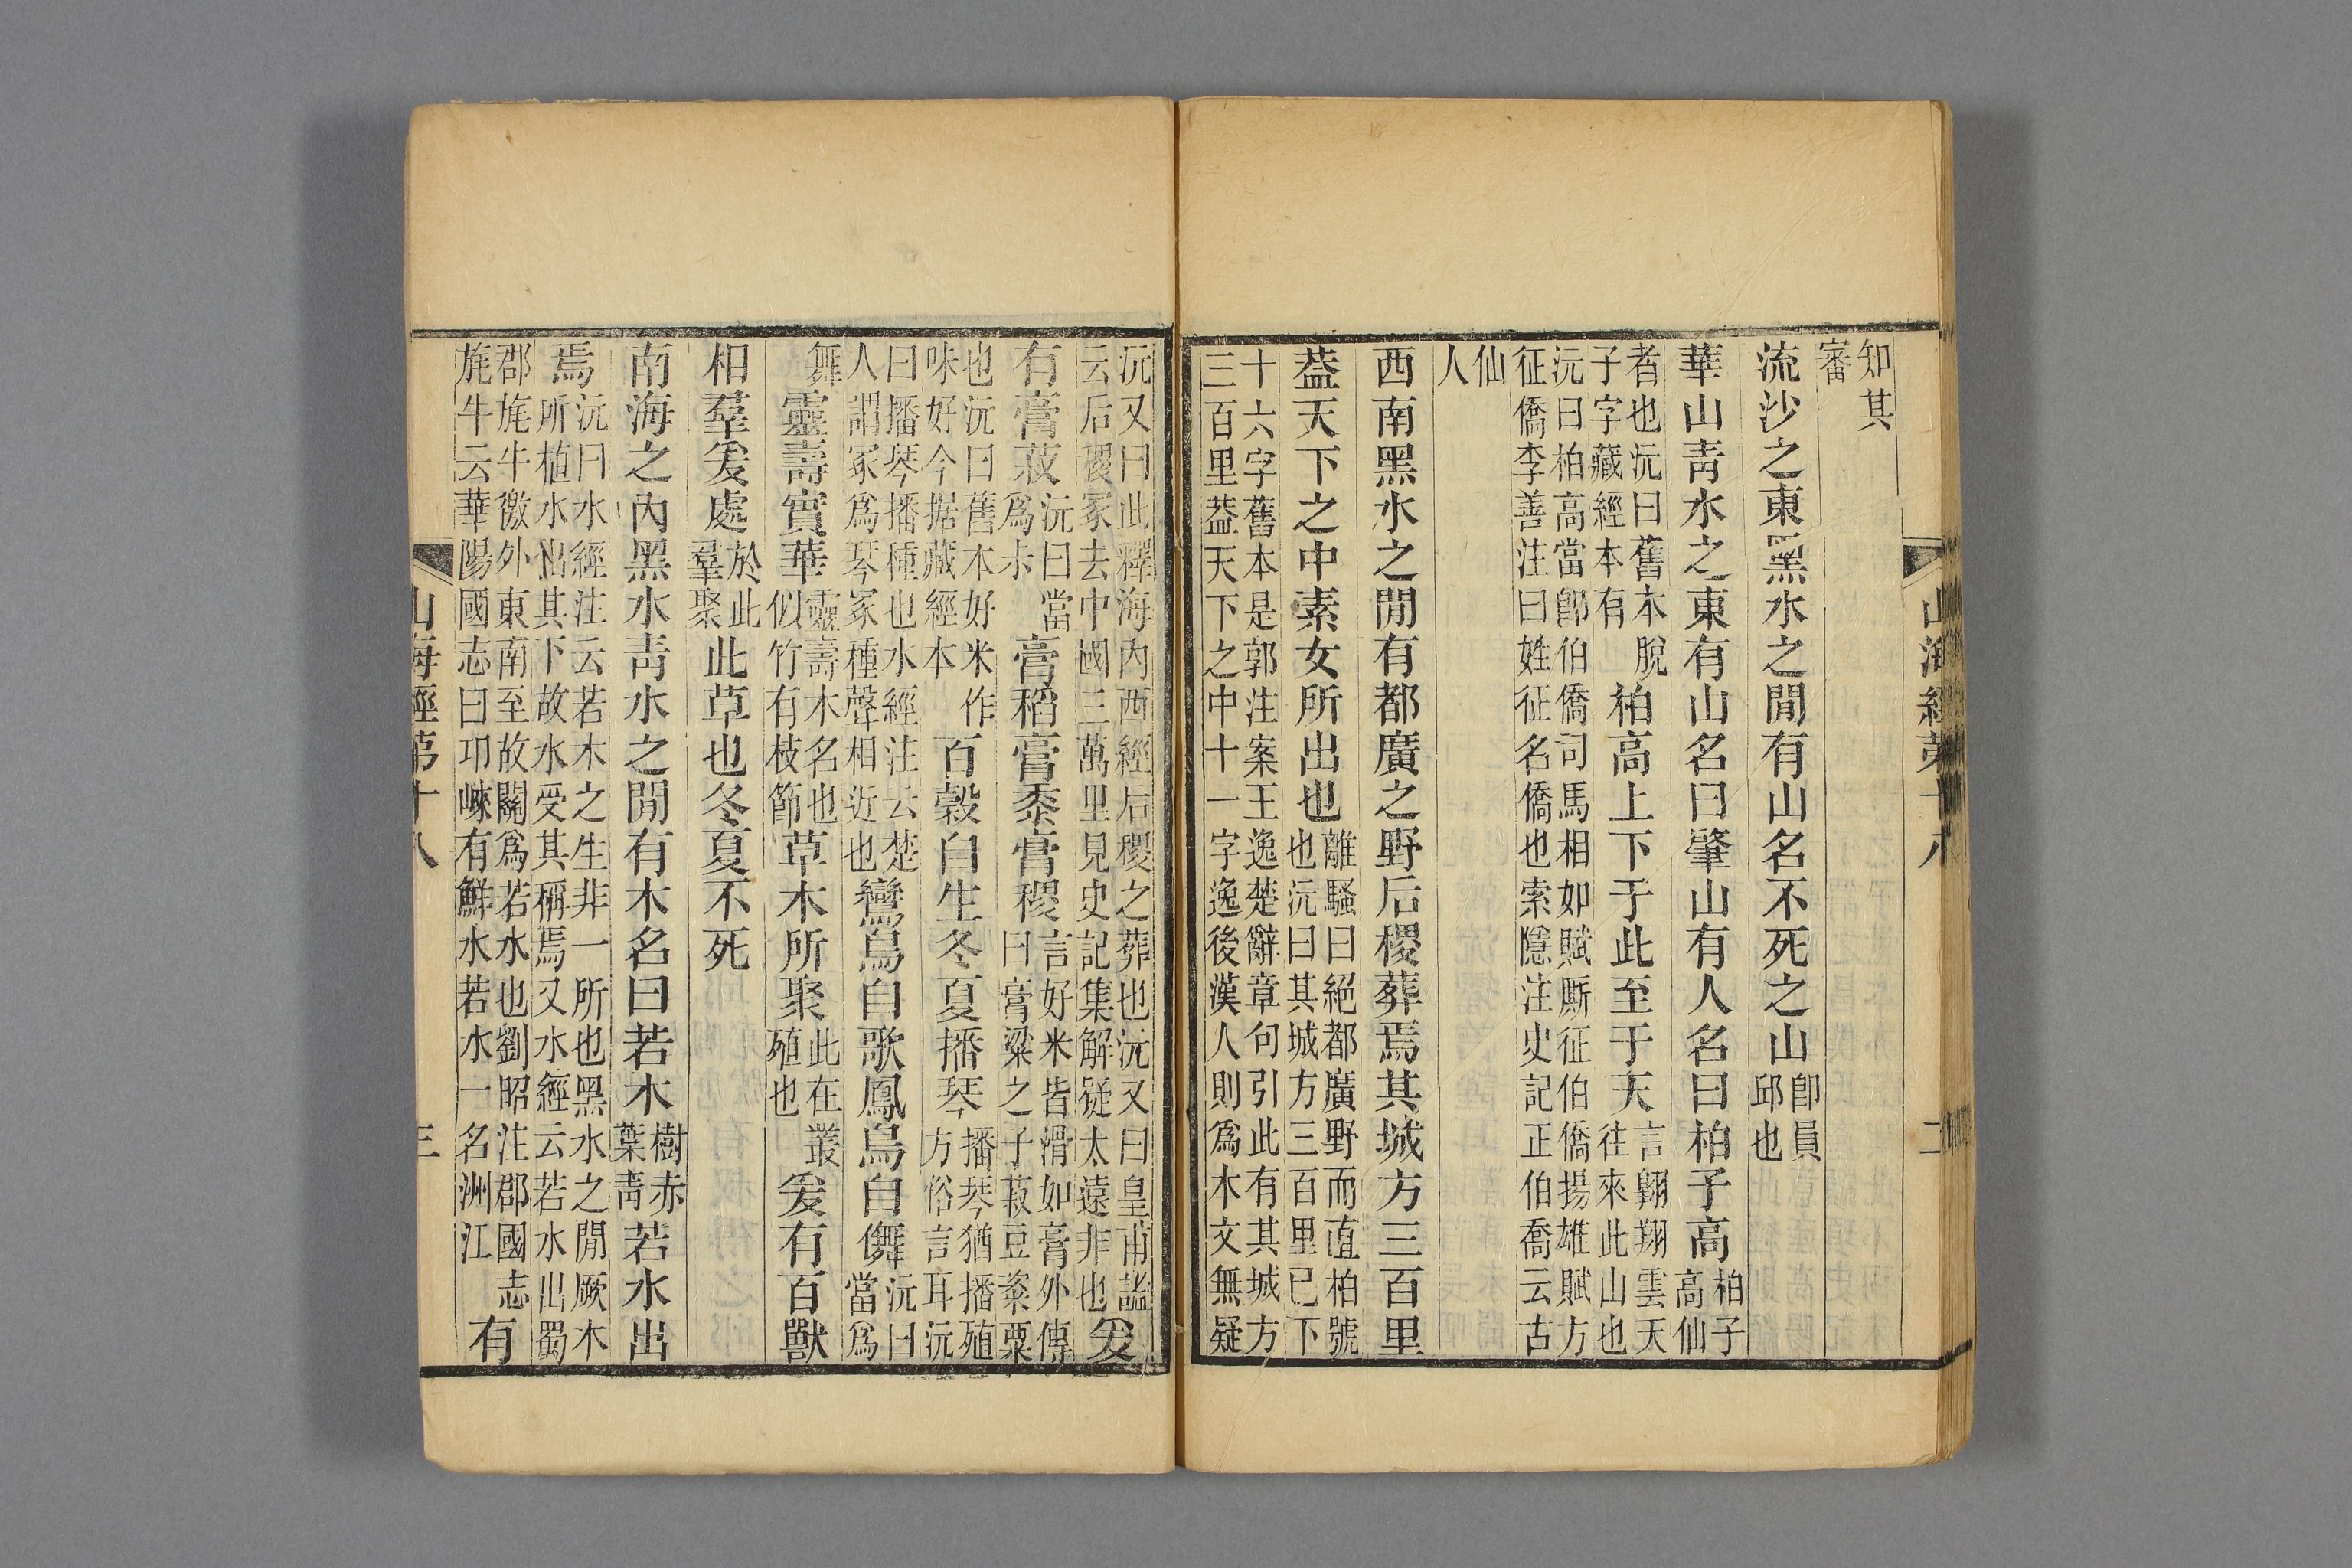 山海經第十八 二
知其審
流沙之東黑水之閒有山名不死之山卽員邱也
華山靑水之東有山名曰肇山有人名曰柏子高柏子高仙
者也沅曰舊本脫子字藏經本有柏高上下于此至于天言翺翔雲天往來此山也
沅曰柏高當卽伯僑司馬相如賦厮征伯僑揚雄賦方征僑李善注曰姓征名僑也索隱注史記正伯喬云古
仙人
西南黑水之閒有都廣之野后稷葬焉其城方三百里
葢天下之中素女所出也離騷曰絕都廣野而直柏號也沅曰其城方三百里已下
十六字舊本是郭注案王逸楚辭章句引此有其城方三百里葢天下之中十一字逸後漢人則爲本文無疑
沅又曰此釋海內西經后稷之葬也沅又曰皇甫謐云后稷冢去中國三萬里見史記集解疑太遠非也爰
有膏菽沅曰當爲尗膏稻膏黍膏稷言好米皆滑如膏外傳曰膏粱之子菽豆粢粟
也沅曰舊本好米作味好今据藏經本百穀自生冬夏播琴播琴猶播殖方俗言耳沅
曰播琴播種也水經注云楚人謂冢爲琴冢種聲相近也鸞鳥自歌鳳鳥自儛沅曰當爲
舞靈壽實華靈壽木名也似竹有枝節草木所聚此在叢殖也爰有百獸
相羣爰處於此羣聚此草也冬夏不死
南海之內黑水靑水之閒有木名曰若木樹赤葉靑若水出
焉沅曰水經注云若木之生非一所也黑水之閒厥木所植水出其下故水受其稱焉又水經云若水出蜀
郡旄牛徼外東南至故關爲若水也劉昭注郡國志旄牛云華陽國志曰邛崍有鮮水若水一名洲江有
山海經第十八 三